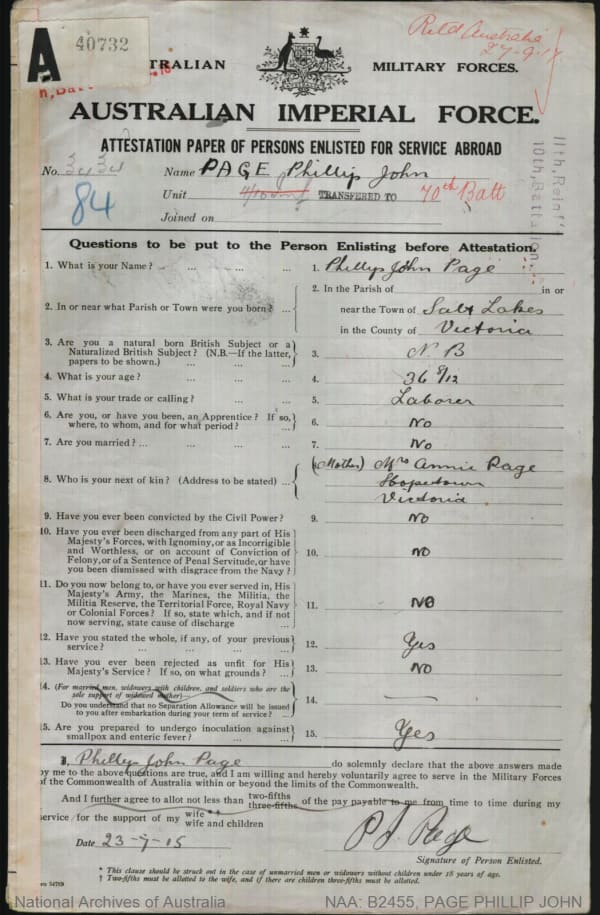 A
40732
Retd Australia
27-9-17
TRALIAN MILITARY FORCES.
AUSTRALIAN IMPERIAL FORCE.
ATTESTATION PAPER OF PERSONS ENLISTED FOR SERVICE ABROAD
No. 3434 Name PAGE Phillip John
84
Unit TRANSFERED TO 70th Batt
11th, Reinf'
10th, Battalion
Joined on
Questions to be put to the Person Enlisting before Attestation.
1. What is your Name? ... ... ... 1. Phillip John Page
2. In or near what Parish or Town were you born? ... 2. In the Parish of in or
near the Town of Salt Lakes
in the County of Victoria
3. Are you a natural born British Subject or a
Naturalized British Subject? (N.B.—If the latter, 3. N. B
papers to be shown.) ... ...
4. What is your age? ... ... ... 4. 36 8/12
5. What is your trade or calling? ... ... 5. Laborer
6. Are you, or have you been, an Apprentice? If so,
where, to whom, and for what period? ... 6. No
7. Are you married? ... ... ... ... 7. No
8. Who is your next of kin? (Address to be stated) ... (Mother) Mrs Annie Page
Hopetown
Victoria
9. Have you ever been convicted by the Civil Power? 9. No
10. Have you ever been discharged from any part of His
Majesty's Forces, with Ignominy, or as Incorrigible
and Worthless, or on account of Conviction of 10. No
Felony, or of a Sentence of Penal Servitude, or have
you been dismissed with disgrace from the Navy?
11. Do you now belong to, or have you ever served in, His
Majesty's Army, the Marines, the Militia, the
Militia Reserve, the Territorial Force, Royal Navy 11. No
or Colonial Forces? If so, state which, and if not
now serving, state cause of discharge ...
12. Have you stated the whole, if any, of your previous
service? ... ... ... ... 12. Yes
13. Have you ever been rejected as unfit for His
Majesty's Service? If so, on what grounds? ... 13. No
14. (For married men, widowers with children, and soldiers who are the
sole support of widowed mother)—
Do you understand that no Separation Allowance will be issued 14. —
to you after embarkation during your term of service? ...
15. Are you prepared to undergo inoculation against
smallpox and enteric fever? ... ... 15. Yes
I, Phillip John Page do solemnly declare that the above answers made
by me to the above questions are true, and I am willing and hereby voluntarily agree to serve in the Military Forces
of the Commonwealth of Australia within or beyond the limits of the Commonwealth.
And I further agree to allot not less than two-fifths three-fifths of the pay payable to me from time to time during my
service for the support of my wife *†
wife and children
Date 23-7-15 P J Page
Signature of Person Enlisted.
* This clause should be struck out in the case of unmarried men or widowers without children under 18 years of age.
† Two-fifths must be allotted to the wife, and if there are children three-fifths must be allotted.
National Archives of Australia NAA: B2455, PAGE PHILLIP JOHN